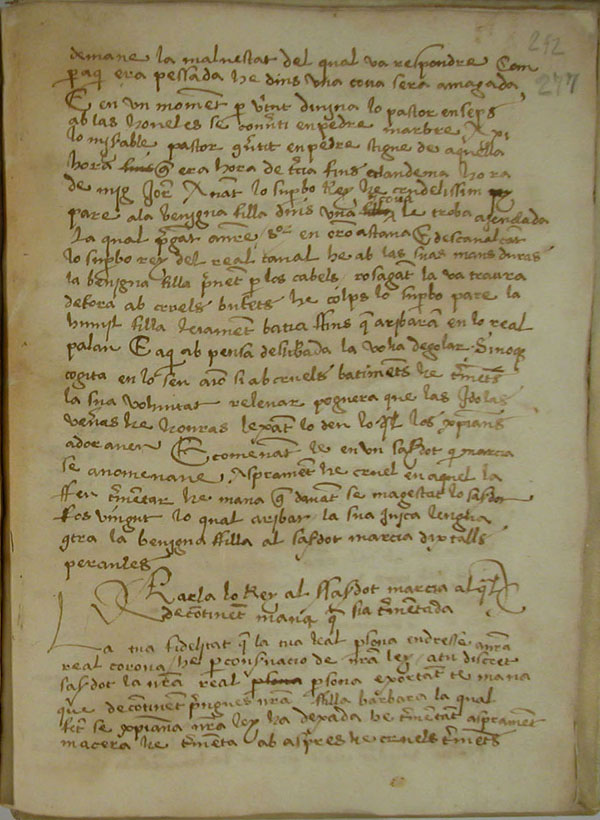 252
277
demane la malvestat del qual va respondre Com
p aq era passada he dins una cova sera amagada
E en un moment p virtut divina lo pastor ensepms
ab las hovelles se converti en pedre marbre
lo miserable pastor en pedre stigue de aquella
hora era hora de tercia fins lendema hora
de mig Jorn Anant lo superbo Rey he crudelissim
pare a la benigna filla dins una cova la troba agenollada
La qual pregant en oro astana E descavalcant
lo superbo rey del real cavall he ab las suas mans duras
la benigna filla prenent p los cabels rosagant la va traura
defora ab cruels bufets he colps lo superbo pare la
humil filla batia ffins q aribaran en lo real
palau E aq ab pensa deliberada la volia degolar
cogita en lo seu si ab cruels batiments he
la sua voluntat relevar poguera que las Idolas
he honras lexant lo deu los xpians
adoraven E comenant le en un saserdot q marcia
se anomenave Asprament he cruel en aquel la
ffeu turmentar he mana q davant se magestat lo saserdot
fos vingut lo qual aribar la sua Inica lengua
contra la benigna ffilla al saserdot marcia dix talls
peraules
Parla lo Rey al ssaserdot marcia al ql
de continent mana q sia turmentada
La tua fidelitat q la tua leal psona endresse
real corona he p conservacio de nra ley a tu discret
saserdot la nra real psona exortant te mana
que de continent prengues nra ffilla barbara la qual
xpiana nra ley ha dexada he asprament
macera he turmenta ab aspres he cruels turments